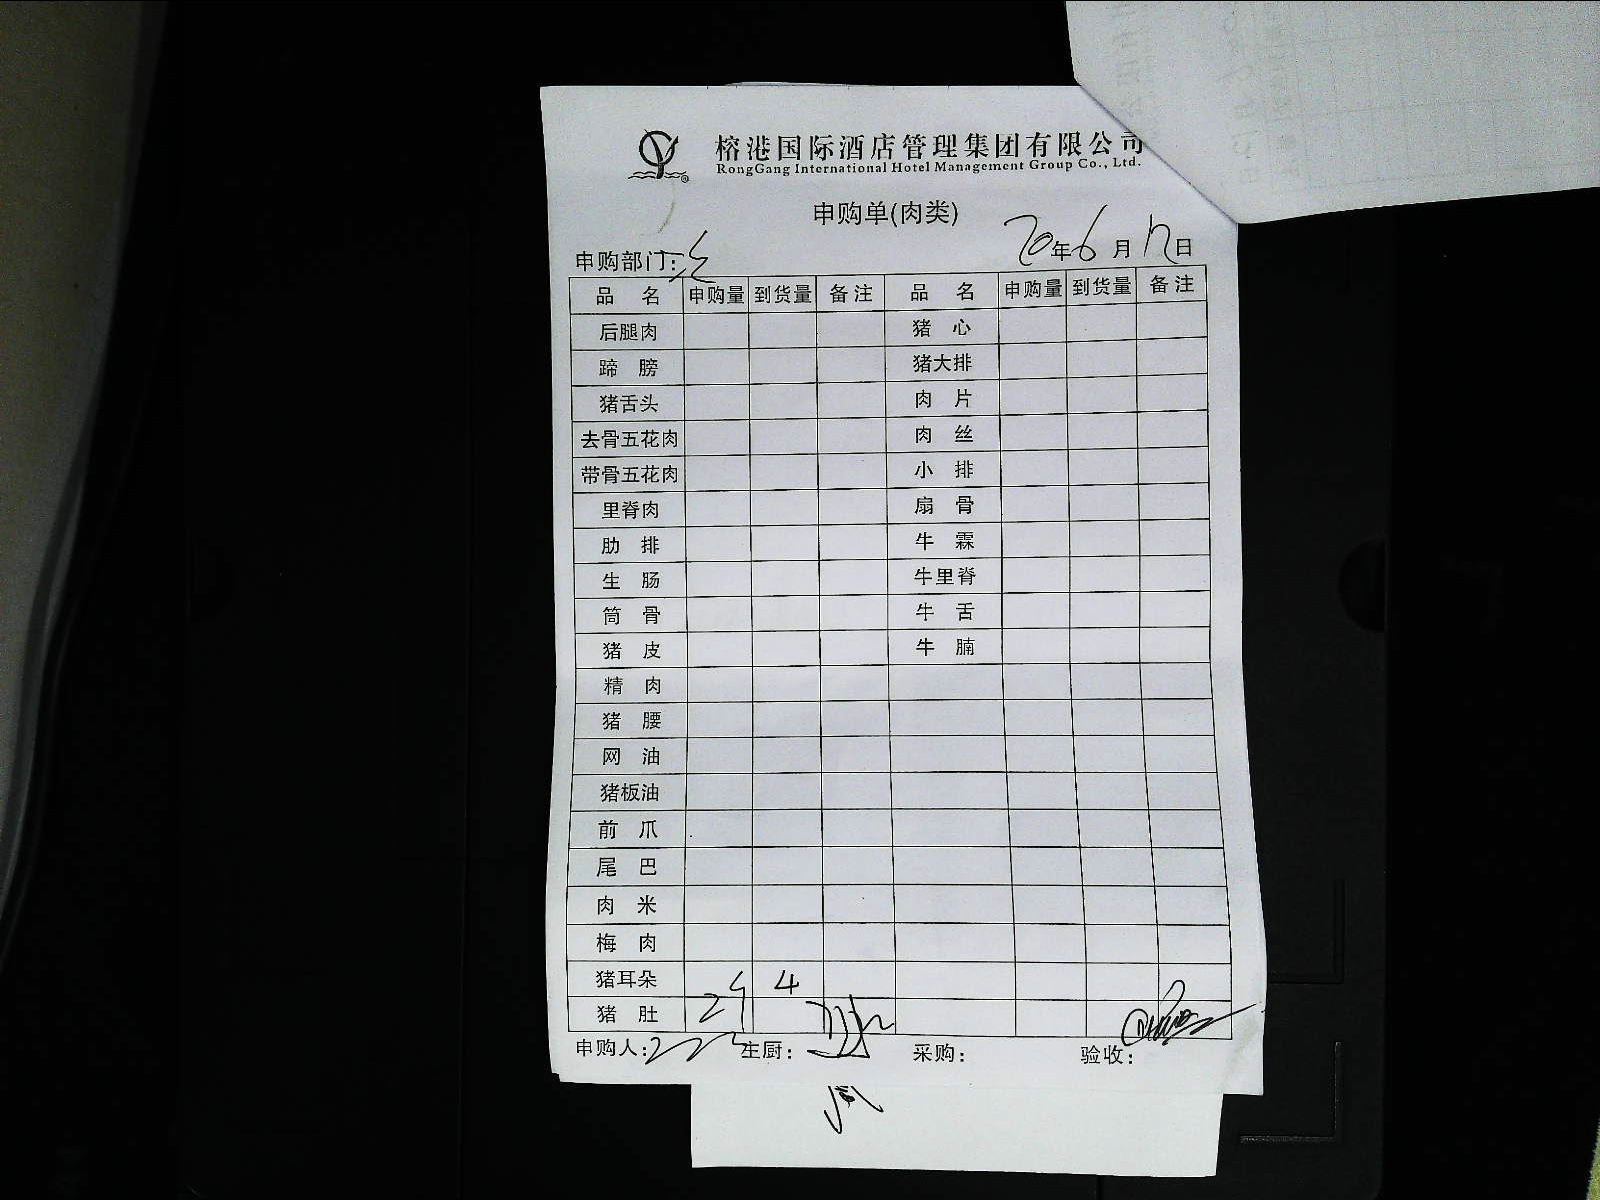 榕港国际酒店管理集团有限公司
RongGang International Hotel Management Group Co., Ltd.
申购单(肉类)
申购部门: 20年6月12日
品 名 申购量 到货量 备注 品 名 申购量 到货量 备注
后腿肉 猪 心
蹄 膀 猪大排
猪舌头 肉 片
去骨五花肉 肉 丝
带骨五花肉 小 排
里脊肉 扇 骨
肋 排 牛 霖
生 肠 牛里脊
筒 骨 牛 舌
猪 皮 牛 腩
精 肉
猪 腰
网 油
猪板油
前 爪
尾 巴
肉 米
梅 肉
猪耳朵 4
猪 肚 2个
申购人: 主厨: 采购: 验收: